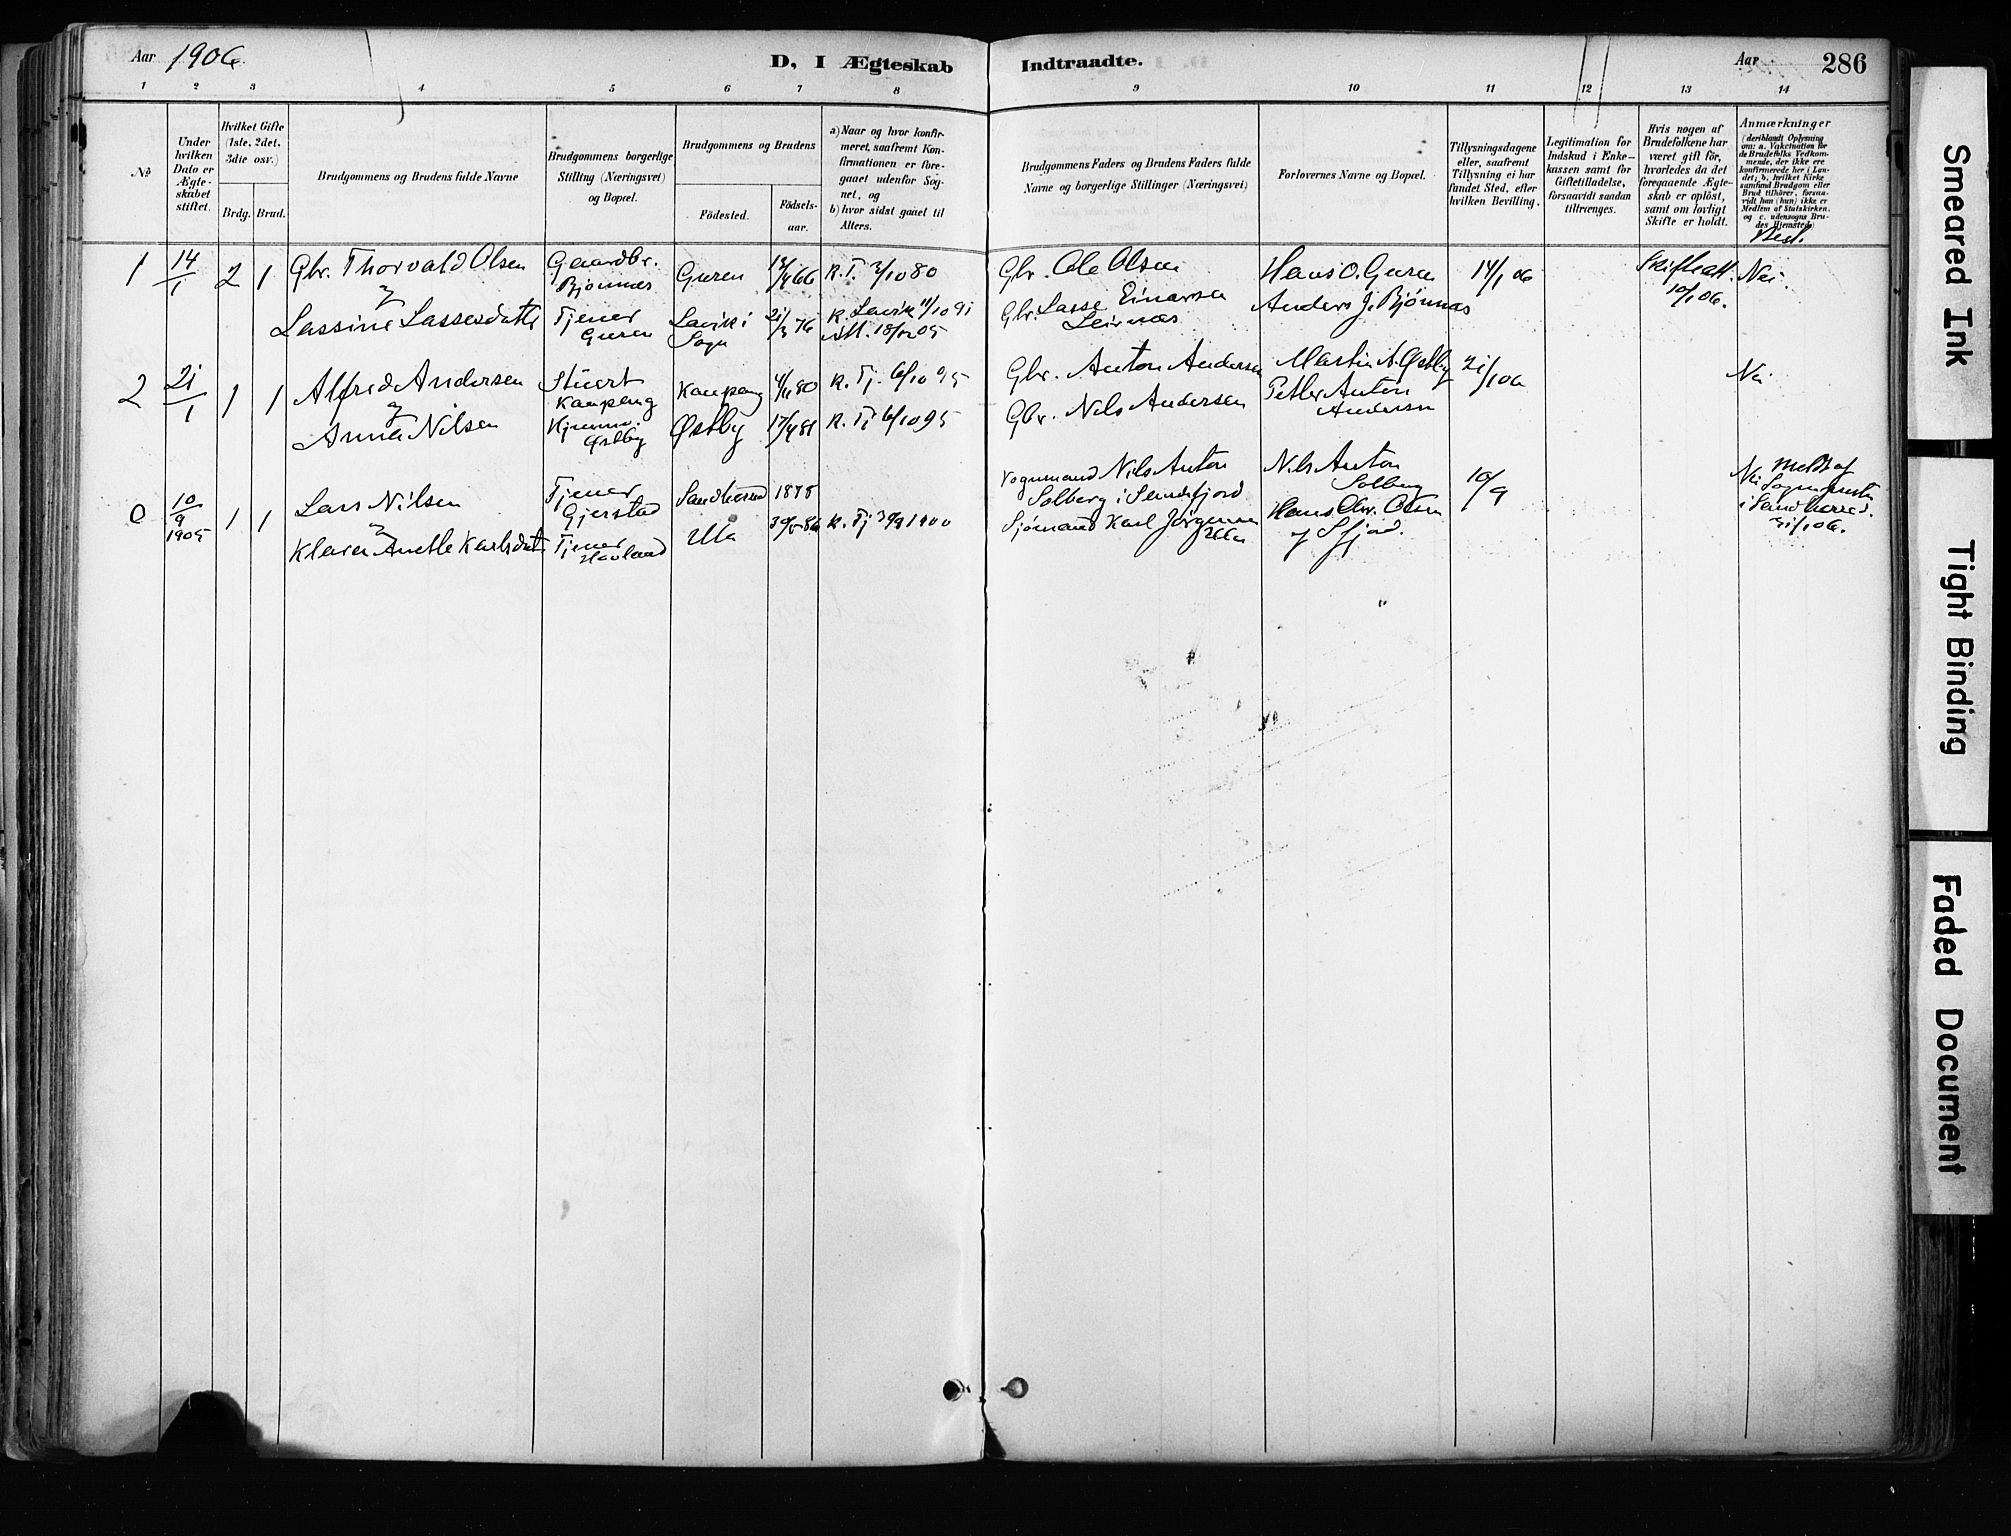 Aar 1906.
D. I Ægteskab Indtraadte.
Aar 286
1 2 3 4 5 6 7 8 9 10 11 12 13 14
No
Under hvilken Dato er Ægteskabet stiftet.
Hvilket Gifte (1ste, 2det, 3die osv.)
Brdg. Brud.
Brudgommens og Brudens fulde Navne
Brudgommens borgerlige Stilling (Næringsvei) og Bopæl.
Brudgommens og Brudens
Födested. Födsels-aar.
a) Naar og hvor konfirmeret, saafremt Konfirmationen er foregaaet udenfor Sognet, og
b) hvor sidst gaaet til Alters.
Brudgommens Faders og Brudens Faders fulde Navne og borgerlige Stillinger (Næringsvei)
Forlovernes Navne og Bopæl.
Tillysningsdagene eller, saafremt Tillysning ei har fundet Sted, efter hvilken Bevilling.
Legitimation for Indskud i Enkekassen samt for Giftetilladelse, forsaavidt saadan tiltrænges.
Hvis nogen af Brudefolkene har været gift för, hvorledes da det foregaaende Ægteskab er oplöst, samt om lovligt Skifte er holdt.
Anmærkninger (deriblandt Oplysning om: a. Vakcination for de Brudefolks Vedkommende, der ikke ere konfirmerede her i Landet; b. hvilket Kirkesamfund Brudgom eller Brud tilhörer, forsaavidt han (hun) ikke er Medlem af Statskirken. og c. udensogns Brudes Hjemsted)
Besl.
1 14/1 2 1 Gbr. Thorvald Olsen Gaardbr. Bjønnes Guren 18/4 66 K. T. 3/10 80 Gbr. Ole Olsen Hans O. Guren 14/1 06 Skifteatt. 10/1 06. Nei.
Lassine Lassesdatter Tjener Guren Lavik i Sogn 21/3 76 K. Lavik 11/10 91 Gbr. Lasse Einarsen Leirnæs Anders J. Bjønnes
2 21/1 1 1 Alfred Andersen Stuert Kaupang Kaupang 4/11 80 K. Tj. 6/10 95 Gbr. Anton Andersen Martin A. Østby 21/1 06 Nei
Anna Nilsen Hjemme. Østby Østby 17/4 81 K. Tj 6/10 95 Gbr. Nils Andersen Petter Anton Andersen
0 10/9 1905 1 1 Lars Nilsen Tjener Gjerstad Sandherred 1878 Vognmand Nils Anton Solberg i Sandefjord Nils Anton Solberg 10/9 Nei Meldt af Sognepresten i Sandherred. 31/1 06.
Klara Anette Karlsdatter Tjener Havland Ula 30/5 86 K. Tj 30/9 1900 Sjømand Karl Jørgensen Ula Hans Chr. Olsen af Sfjord.
Smeared Ink
Tight Binding
Faded Document